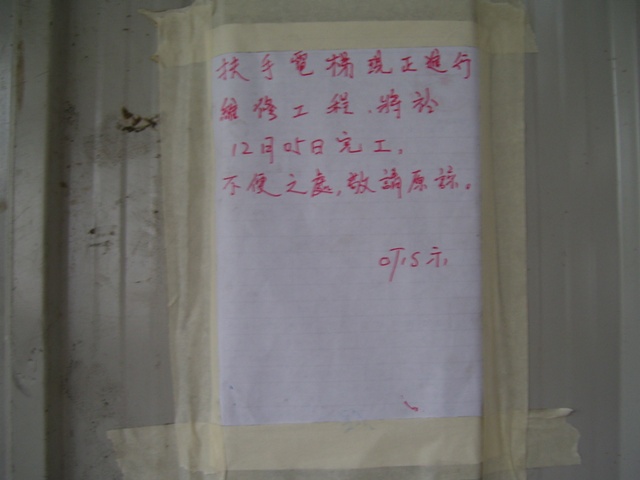 扶手電梯現正進行
維修工程.將於
12月05日完工.
不便之處,敬請原諒。
OTIS 示.